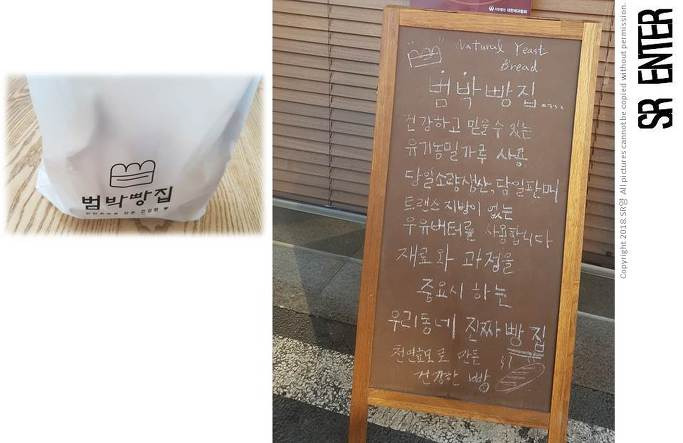 범박빵집
Natural Yeast
Bread
범박빵집....
건강하고 믿을수 있는
유기농밀가루 사용
당일소량생산, 당일판매
트랜스지방이 없는
우유버터를 사용합니다
재료와 과정을
중요시 하는
우리동네 진짜빵집
천연효모로 만든
건강한 빵
SR ENTER
Copyright 2018.SR영 All pictures cannot be copied without permission.